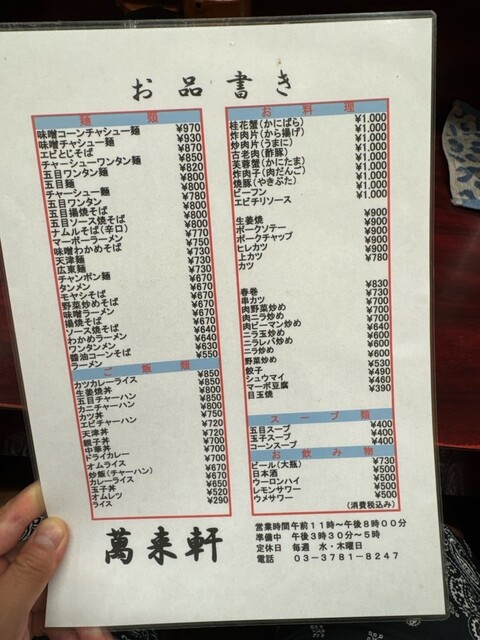 お品書き
麺類
味噌コーンチャシュー麺 ¥970
味噌チャシュー麺 ¥930
エビとじそば ¥870
チャーシューワンタン麺 ¥850
五目ワンタン麺 ¥820
五目麺 ¥800
チャーシュー麺 ¥800
五目ワンタン ¥780
五目揚焼そば ¥800
五目ソース焼そば ¥800
ナムルそば(辛口) ¥770
マーボーラーメン ¥750
味噌わかめそば ¥730
天津麺 ¥730
広東麺 ¥730
チャンポン麺 ¥670
タンメン ¥670
モヤシそば ¥670
野菜炒めそば ¥670
味噌ラーメン ¥670
揚焼そば ¥670
ソース焼そば ¥640
わかめラーメン ¥640
ワンタンメン ¥630
醬油コーンそば
ラーメン ¥550
ご飯類
カツカレーライス ¥850
生姜焼丼 ¥850
五目チャーハン ¥800
カニチャーハン ¥800
カツ丼 ¥750
エビチャーハン ¥720
天津丼 ¥720
親子丼 ¥700
中華丼 ¥700
ドライカレー ¥700
オムライス
炒飯(チャーハン) ¥670
カレーライス ¥670
玉子丼 ¥650
オムレツ ¥520
ライス ¥290
お料理
桂花蟹(かにばら) ¥1.000
炸肉片(から揚げ) ¥1.000
炒肉片(うまに) ¥1.000
古老肉(酢豚) ¥1.000
芙蓉蟹(かにたま) ¥1.000
炸肉子(肉だんご) ¥1.000
焼豚(やきぶた) ¥1.000
ビーフン
エビチリソース
生姜焼 ¥900
ポークソテー ¥900
ポークチャップ ¥900
ヒレカツ ¥900
上カツ ¥780
カツ
春巻 ¥830
串カツ ¥730
肉野菜炒め ¥700
肉ニラ炒め ¥700
肉ピーマン炒め ¥640
ニラ玉炒め ¥600
ニラレバ炒め ¥600
ニラ炒め ¥600
野菜炒め
餃子 ¥530
シュウマイ ¥490
マーボ豆腐 ¥460
目玉焼 ¥390
スープ類
五目スープ ¥400
玉子スープ ¥400
コーンスープ ¥400
お飲み物
ビール(大瓶) ¥730
日本酒 ¥500
ウーロンハイ ¥500
レモンサワー ¥500
ウメサワー ¥500
(消費税込み)
萬来軒
営業時間 午前11時~午後8時00分
準備中 午後3時30分~5時
定休日 毎週 水・木曜日
電話 03-3781-8247